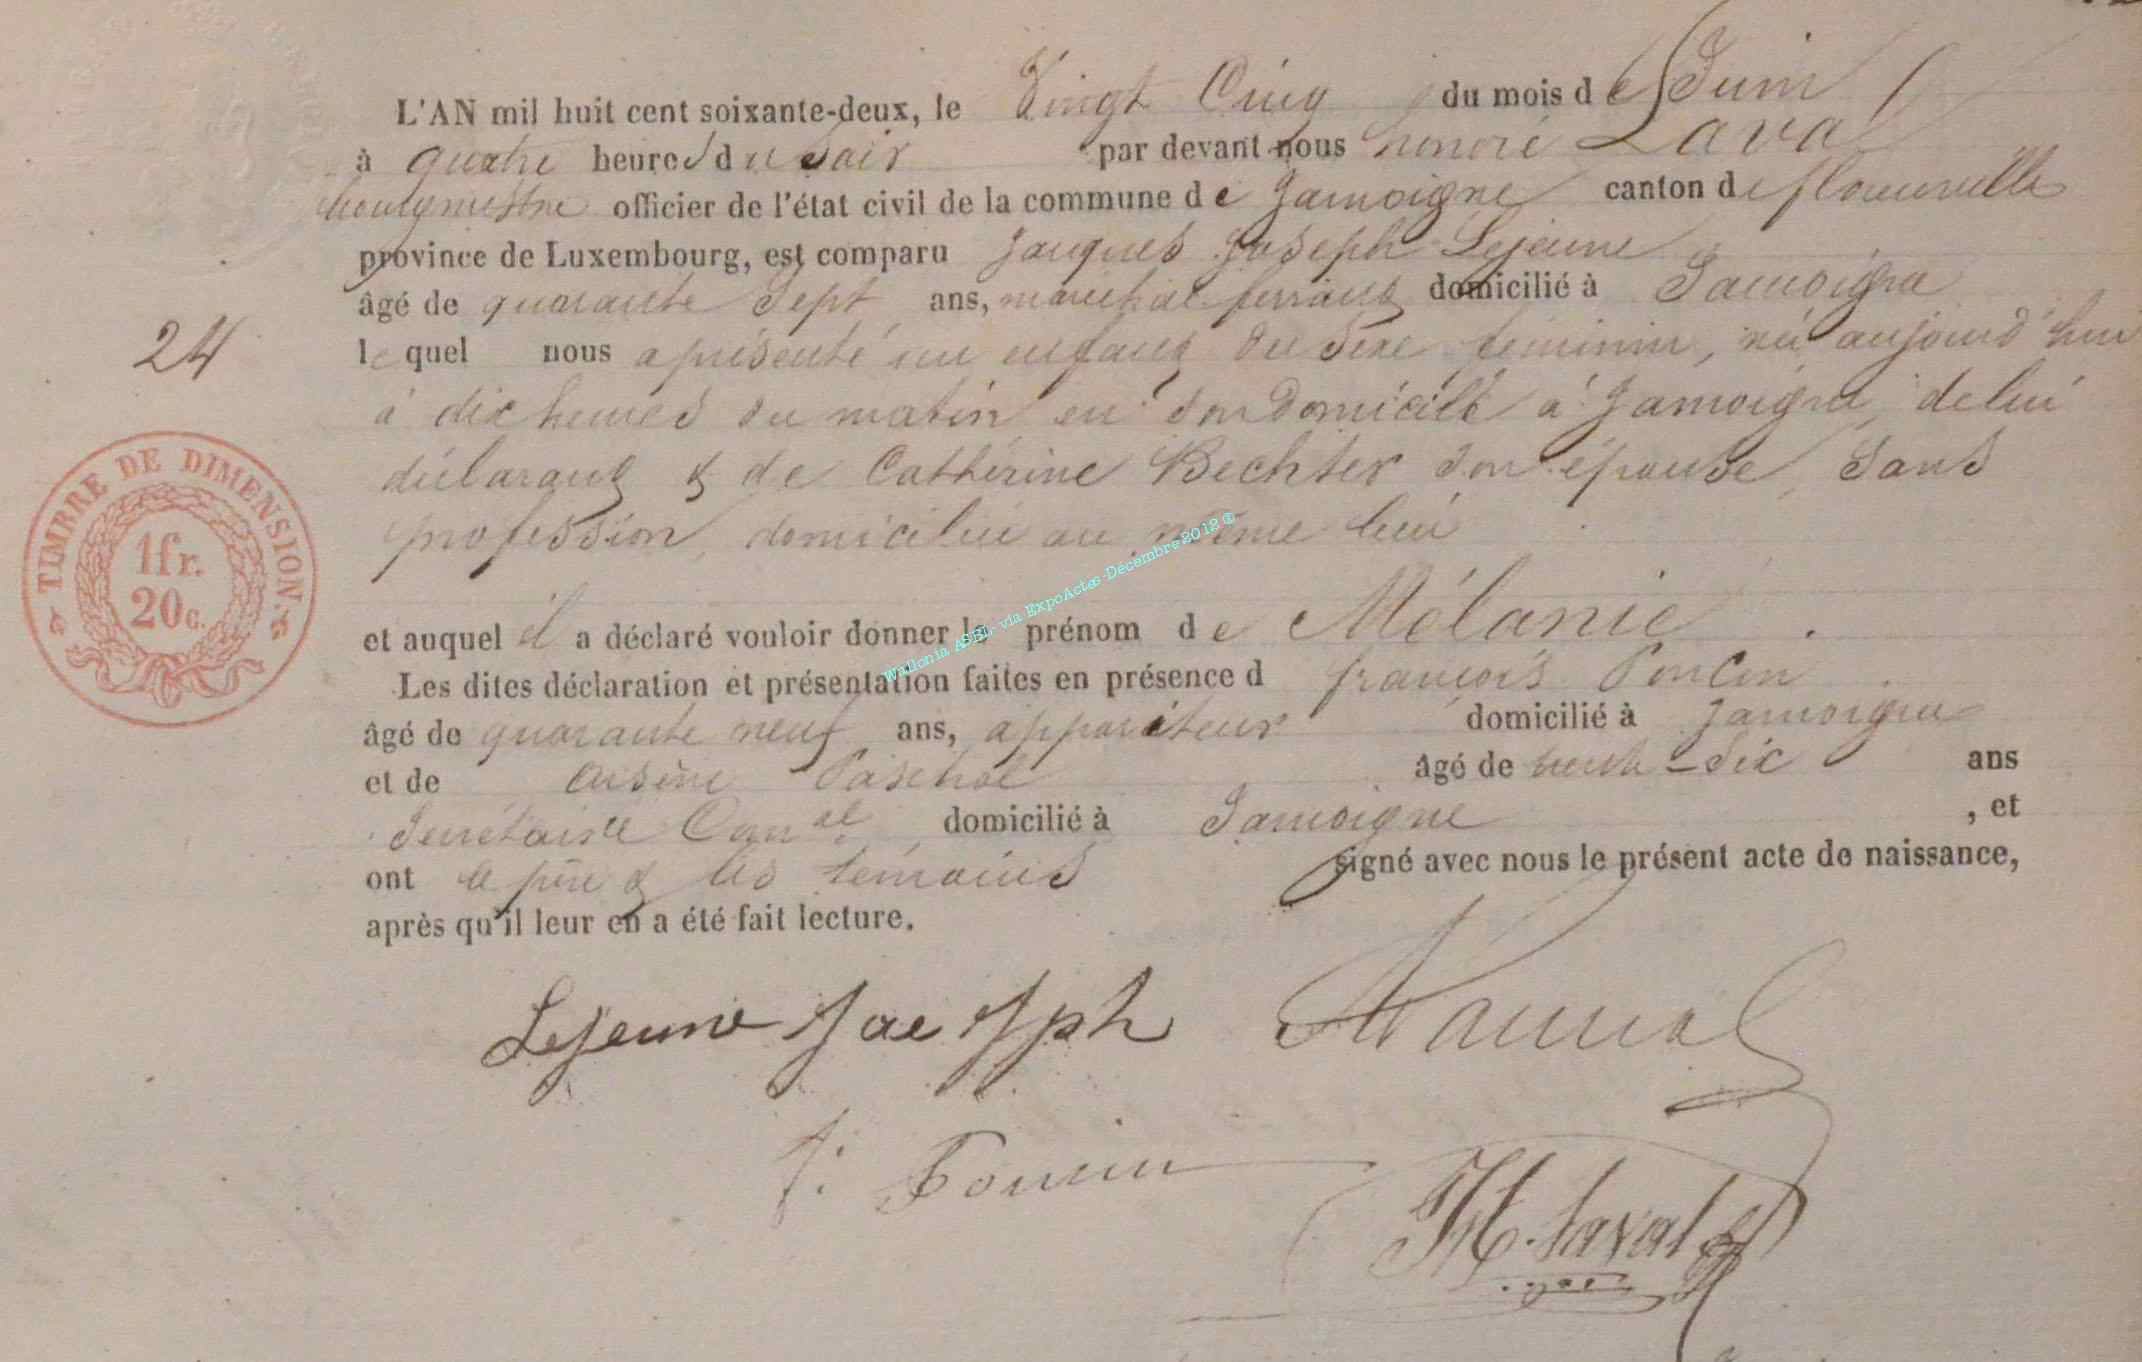 L'AN mil huit cent soixante-deux, le Vingt Cinq du mois de Juin
à quatre heures du Soir par devant nous honoré Laval
bourgmestre officier de l'état civil de la commune de Jamoigne canton de florenville
province de Luxembourg, est comparu Jacques Joseph Lejeune
âgé de quarante Sept ans, marechal ferrant domicilié à Jamoigne
24
le quel nous a présenté un enfant du Sexe feminin, né aujourd'hui
à dix heures du matin en son Domicile à Jamoigne, de lui
déclarant & de Cathérine Bechter son épouse, Sans
profession, domiciliée au même lieu
TIMBRE DE DIMENSION.
1fr.
20c.
et auquel il a déclaré vouloir donner le prénom de Mélanie.
Les dites déclaration et présentation faites en présence d françois Poncin
âgé de quarante neuf ans, appariteur domicilié à Jamoigne
et de arsène Paschal âgé de trente-six ans
Secrétaire Com al domicilié à Jamoigne, et
ont le père & les témoins signé avec nous le présent acte de naissance,
après qu'il leur en a été fait lecture.
Wallonia ASBL via ExpoActes-Décembre 2012 ®
Lejeune Jac Jph
f: Poncin
H. Laval